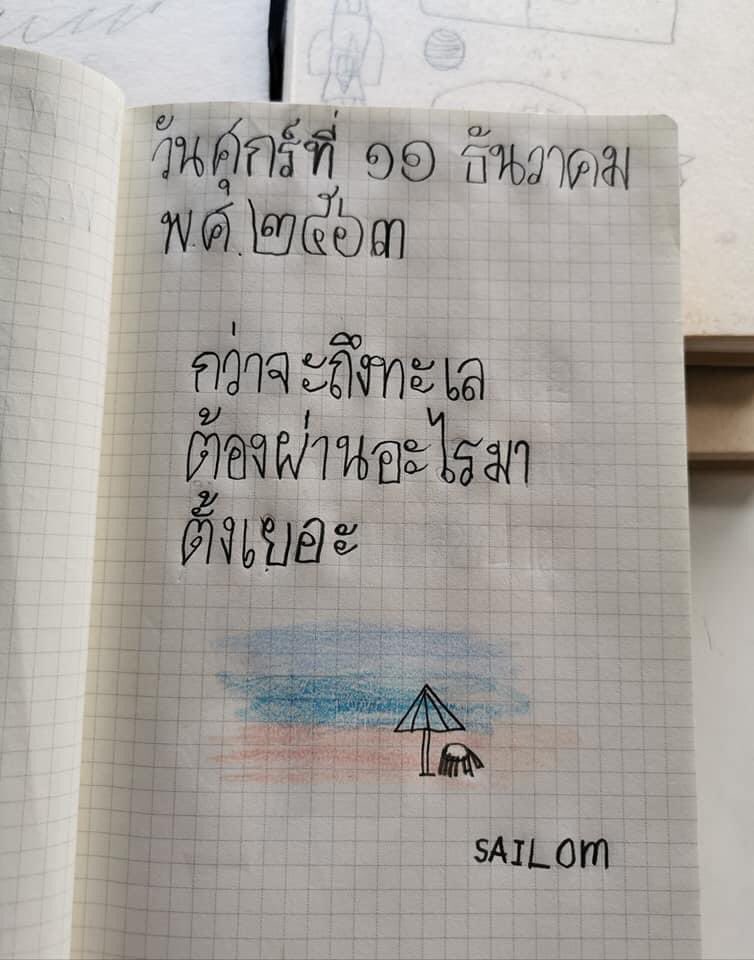 วันศุกร์ที่ ๑๑ ธันวาคม
พ.ศ. ๒๕๖๓
กว่าจะถึงทะเล
ต้องผ่านอะไรมา
ตั้งเยอะ
SAILOM